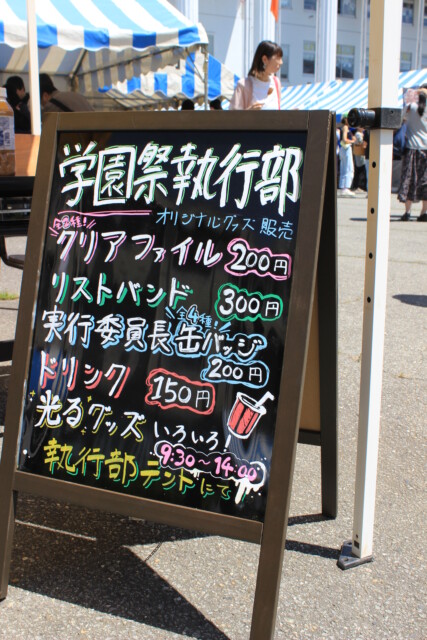 学園祭執行部
オリジナルグッズ販売
クリアファイル 200円
リストバンド 300円
全4種!
実行委員長缶バッジ
200円
ドリンク 150円
光るグッズ いろいろ!
9:30～14:00
執行部テントにて